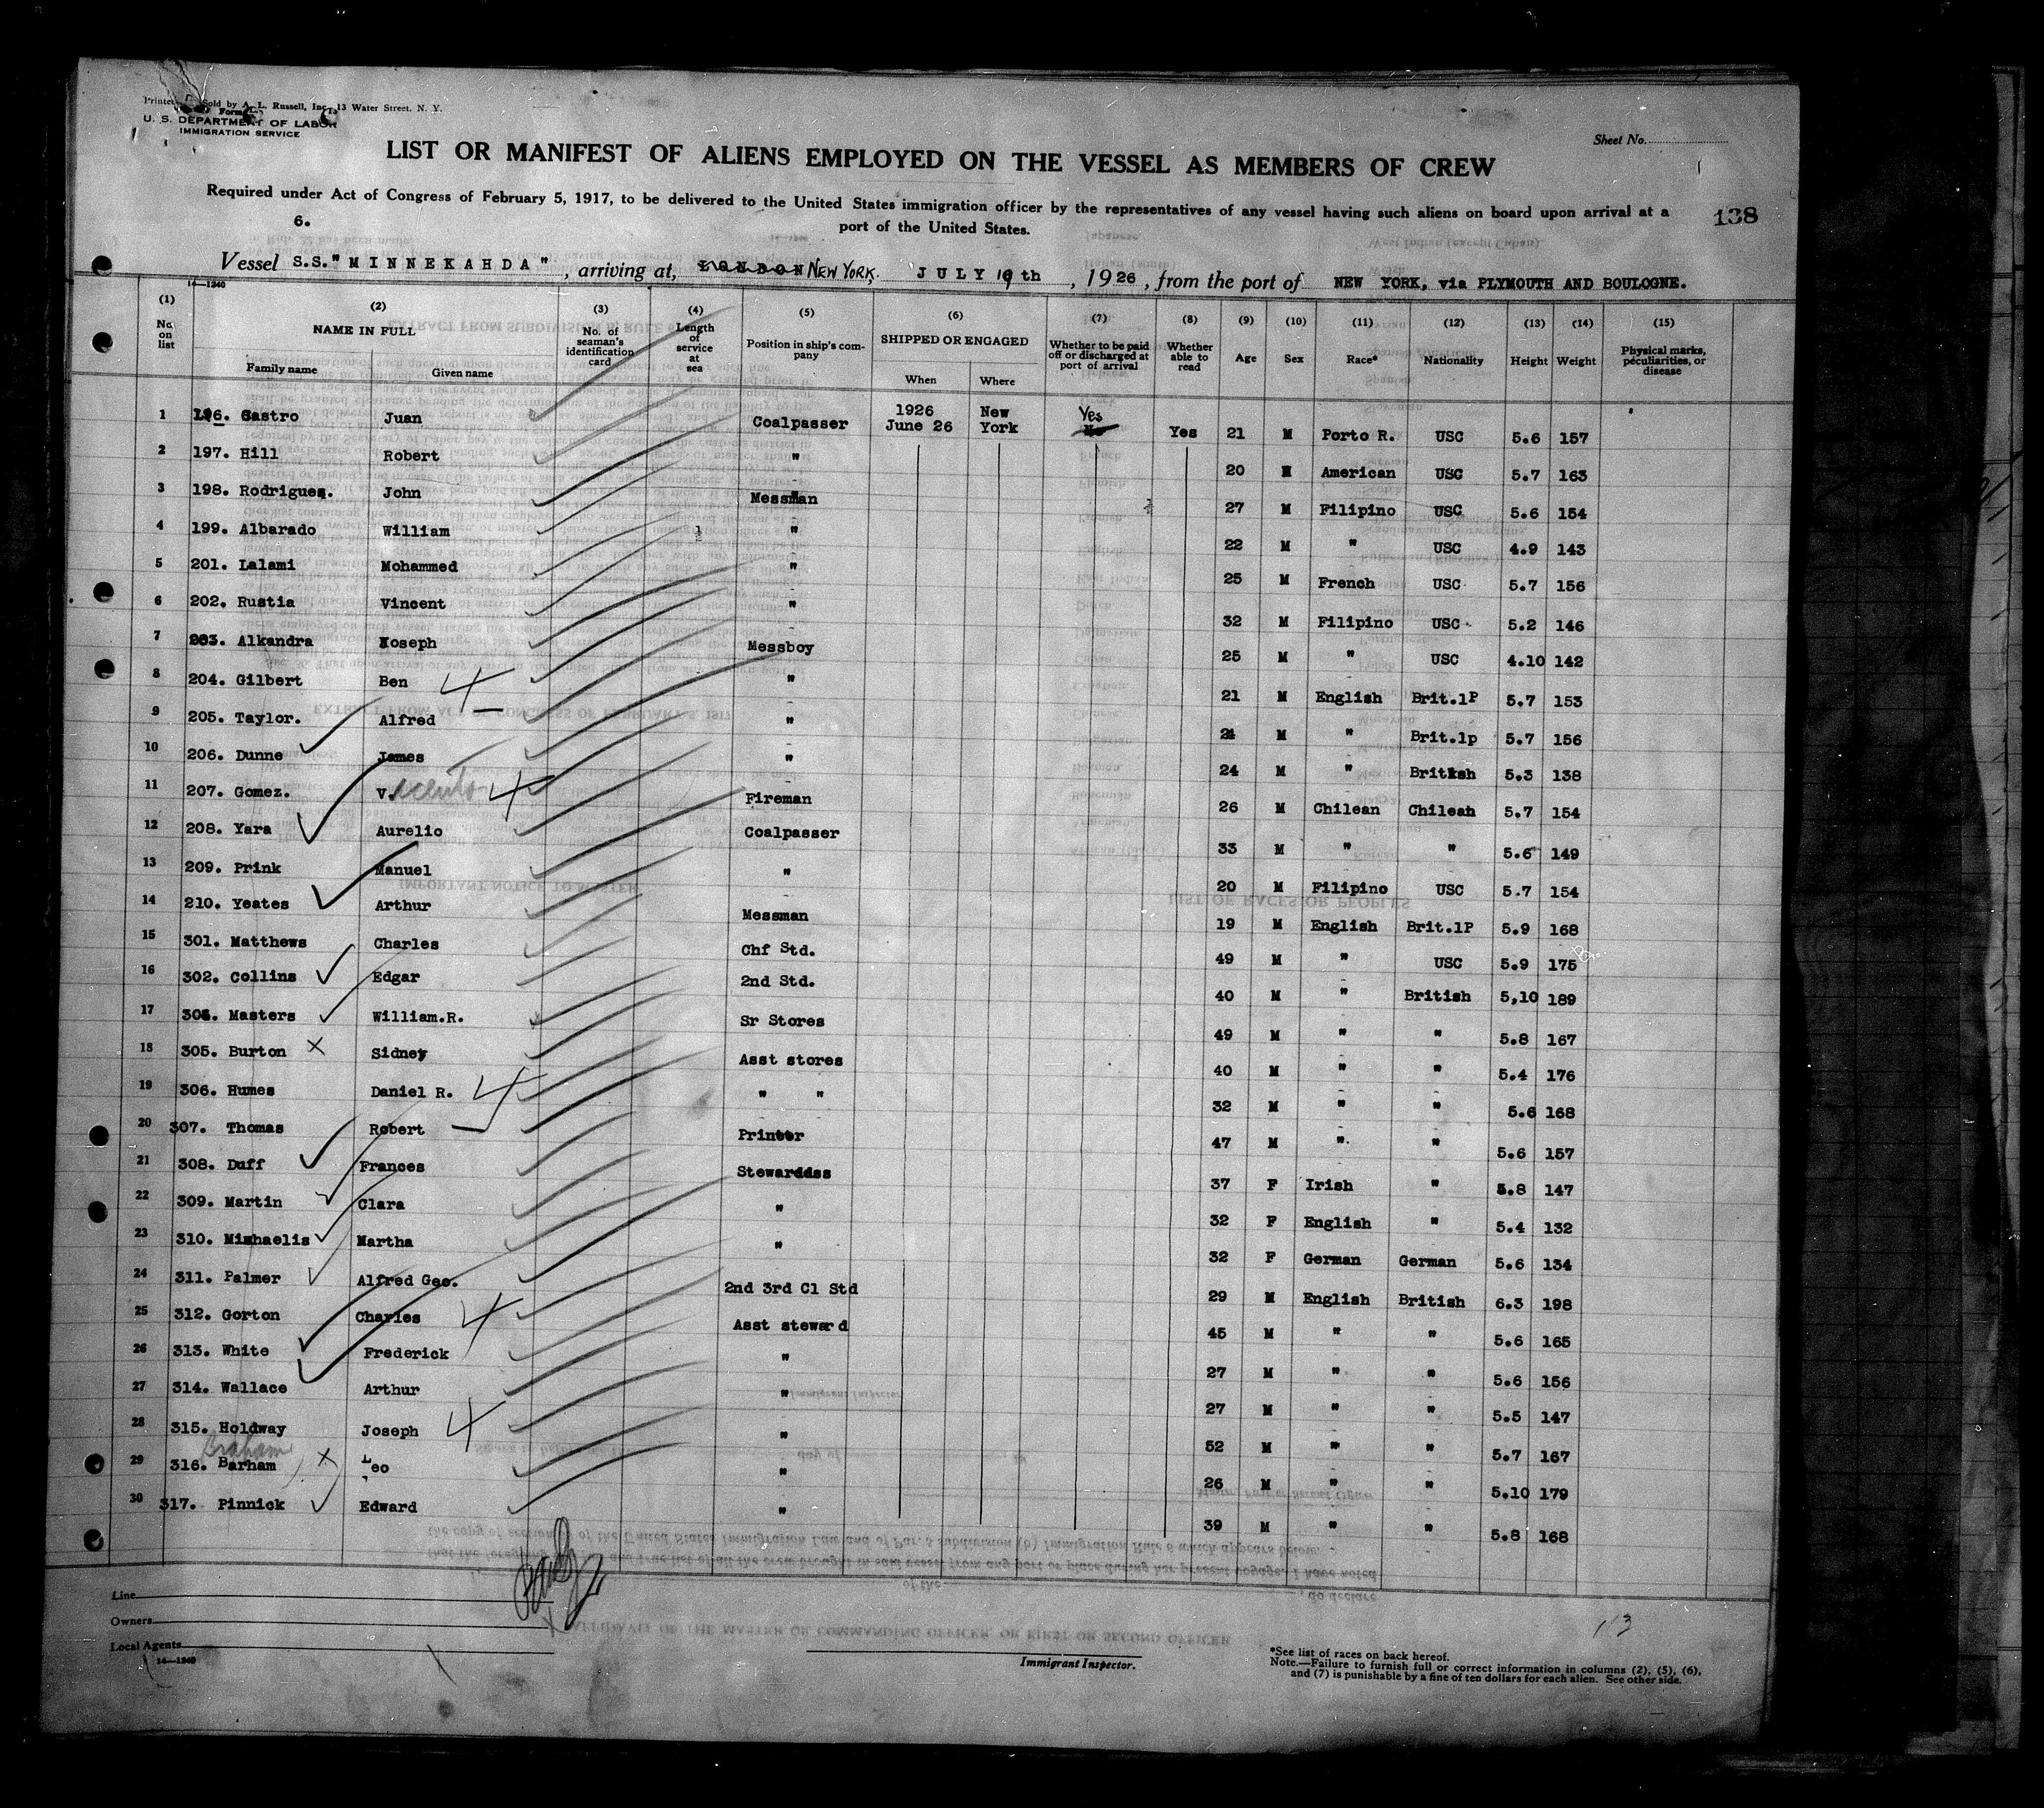 Sold by A. L. Russell, Inc., 13 Water Street, N. Y.
Form
U. S. DEPARTMENT OF LABOR
IMMIGRATION SERVICE
Sheet No.
LIST OR MANIFEST OF ALIENS EMPLOYED ON THE VESSEL AS MEMBERS OF CREW
Required under Act of Congress of February 5, 1917, to be delivered to the United States immigration officer by the representatives of any vessel having such aliens on board upon arrival at a
port of the United States.
6.
138
Vessel S.S."MINNEKAHDA", arriving at, LONDON NEW YORK, JULY 19th, 1926, from the port of NEW YORK, via PLYMOUTH AND BOULOGNE.
14—1240
(1) No. on list (2) NAME IN FULL Family name Given name (3) No. of seaman's identification card (4) Length of service at sea (5) Position in ship's company (6) SHIPPED OR ENGAGED When Where (7) Whether to be paid off or discharged at port of arrival (8) Whether able to read (9) Age (10) Sex (11) Race* (12) Nationality (13) Height (14) Weight (15) Physical marks, peculiarities, or disease
1 196. Castro Juan Coalpasser 1926 June 26 New York Yes No Yes 21 M Porto R. USC 5.6 157
2 197. Hill Robert " 20 M American USC 5.7 163
3 198. Rodrigues. John Messman 27 M Filipino USC 5.6 154
4 199. Albarado William " 22 M " USC 4.9 143
5 201. Lalami Mohammed " 25 M French USC 5.7 156
6 202. Rustia Vincent " 32 M Filipino USC 5.2 146
7 203. Alkandra Joseph Messboy 25 M " USC 4.10 142
8 204. Gilbert Ben " 21 M English Brit.1P 5.7 153
9 205. Taylor. Alfred " 21 M " Brit.1p 5.7 156
10 206. Dunne James " 24 M " British 5.3 138
11 207. Gomez. V. Fireman 26 M Chilean Chilean 5.7 154
12 208. Yara Aurelio Coalpasser 33 M " " 5.6 149
13 209. Prink Manuel " 20 M Filipino USC 5.7 154
14 210. Yeates Arthur Messman 19 M English Brit.1P 5.9 168
15 301. Matthews Charles Chf Std. 49 M " USC 5.9 175
16 302. Collins Edgar 2nd Std. 40 M " British 5,10 189
17 304. Masters William.R. Sr Stores 49 M " " 5.8 167
18 305. Burton Sidney Asst stores 40 M " " 5.4 176
19 306. Humes Daniel R. " " 32 M " " 5.6 168
20 307. Thomas Robert Printer 47 M " " 5.6 157
21 308. Duff Frances Stewardess 37 F Irish " 5.8 147
22 309. Martin Clara " 32 F English " 5.4 132
23 310. Mixhaelis Martha " 32 F German German 5.6 134
24 311. Palmer Alfred Geo. 2nd 3rd Cl Std 29 M English British 6.3 198
25 312. Gorton Charles Asst steward 45 M " " 5.6 165
26 313. White Frederick " 27 M " " 5.6 156
27 314. Wallace Arthur " 27 M " " 5.5 147
28 315. Holdway Joseph " 52 M " " 5.7 167
Graham
29 316. Barham Leo " 26 M " " 5.10 179
30 317. Pinnick Edward " 39 M " " 5.8 168
Line
Owners
Local Agents
14—1240
Immigrant Inspector.
13
*See list of races on back hereof.
Note.—Failure to furnish full or correct information in columns (2), (5), (6),
and (7) is punishable by a fine of ten dollars for each alien. See other side.